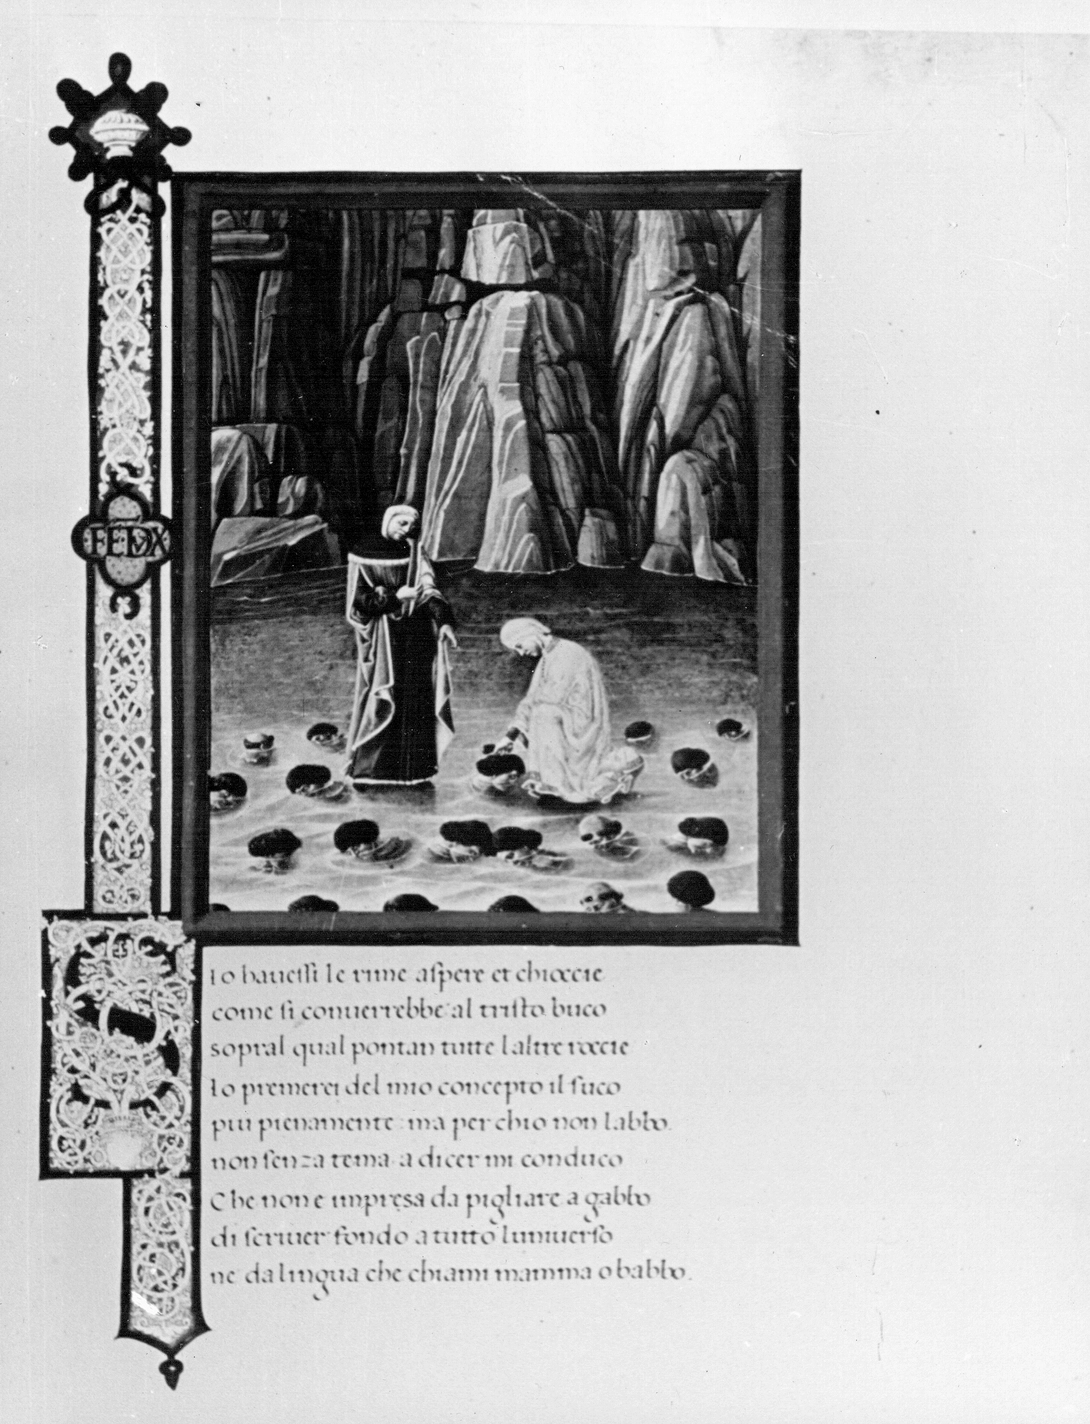 FEDX
S
Io havessi le rime aspere et chioccie
come si conuerrebbe al tristo buco
sopral qual pontan tutte laltre roccie
Io premerei del mio concepto il suco
piu pienamente ma per chio non labbo.
non senza tema a dicer mi conduco
Che non e impresa da pigliare a gabbo
di scriuer fondo a tutto luniuerso
ne da lingua che chiami mamma o babbo.